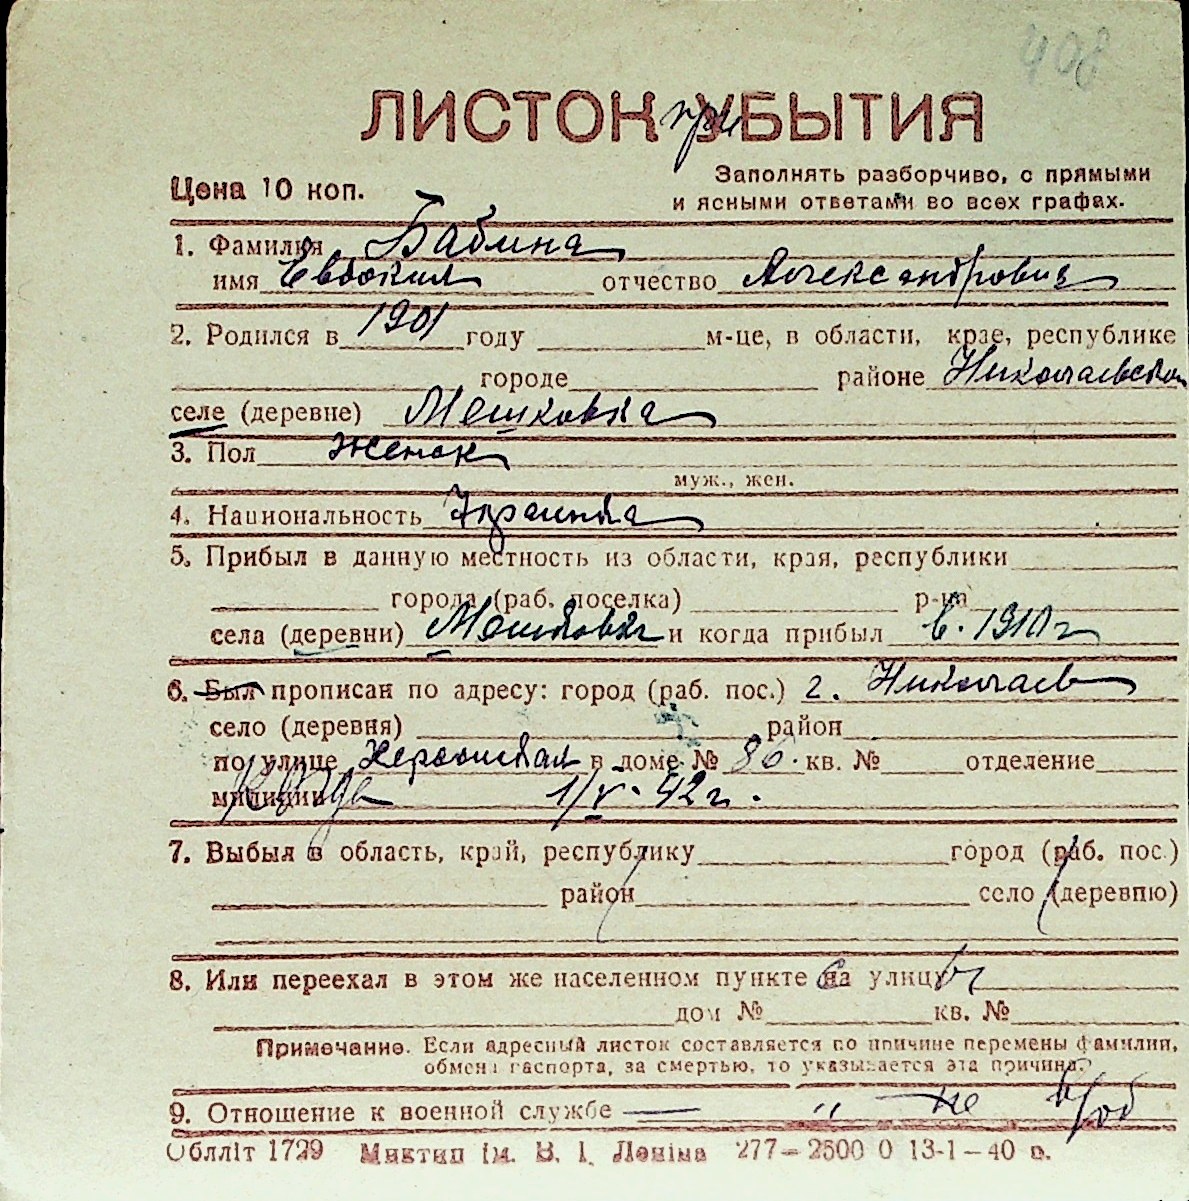 408
ЛИСТОК при УБЫТИЯ
Цена 10 коп.
Заполнять разборчиво, с прямыми
и ясными ответами во всех графах.
1. Фамилия Бабина
имя Евдокия отчество Александровна
2. Родился в 1901 году м-це, в области, крае, республике
городе районе Николаевском
селе (деревне) Мешковка
3. Пол женск
муж., жен.
4. Национальность Украинка
5. Прибыл в данную местность из области, края, республики
города (раб. поселка) р-на
села (деревни) Мешковка и когда прибыл в. 1910 г
6. Был прописан по адресу: город (раб. пос.) г. Николаев
село (деревня) район
по улице Херсонская в доме № 86. кв. № отделение
милиции 1/V. 42 г.
7. Выбыл в область, край, республику город (раб. пос.)
район село (деревню)
8. Или переехал в этом же населенном пункте на улицу
дом № кв. №
Примечание. Если адресный листок составляется по причине перемены фамилии,
обмена паспорта, за смертью, то указывается эта причина.
9. Отношение к военной службе — „ — не в/об
Обллiт 1729 Миктип iм. В. I. Ленiна 277—2500 0 13-1—40 р.